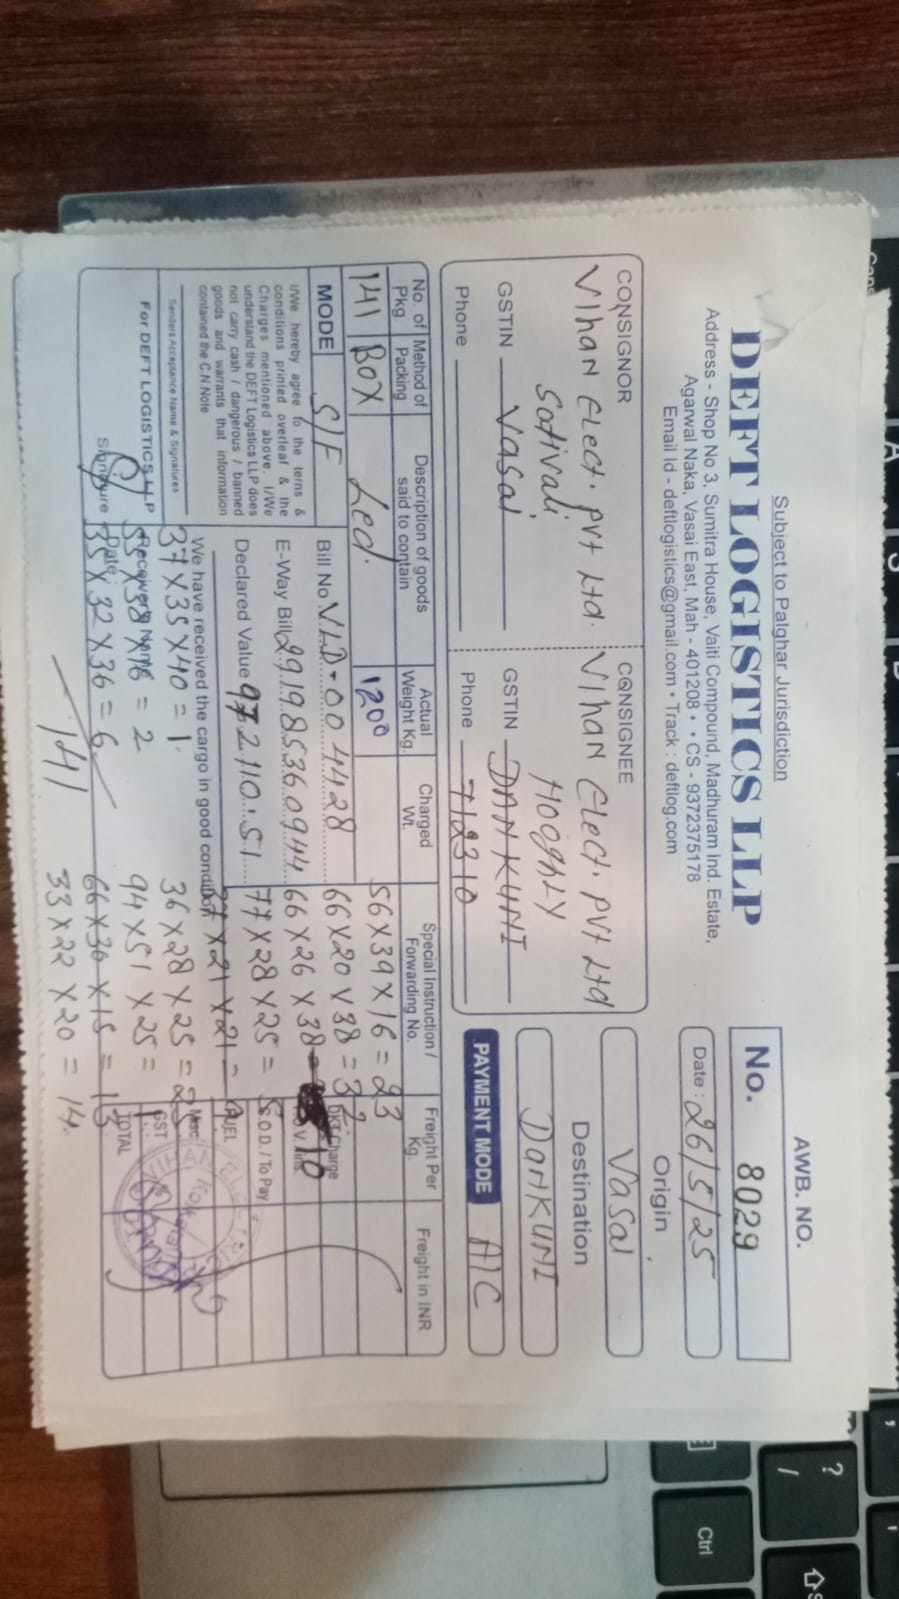 Subject to Palghar Jurisdiction
DEFT LOGISTICS LLP
Address - Shop No 3, Sumitra House, Vaiti Compound, Madhuram Ind. Estate,
Agarwal Naka, Vasai East, Mah - 401208 • • CS - 9372375178
Email Id - deftlogistics@gmail.com • Track : deftlog.com
AWB. NO.
No. 8029
Date : 26/5/25
Origin
Vasai
Destination
DANKUNI
PAYMENT MODE A/C
CONSIGNOR
Vihan Elect. Pvt Ltd.
Sativali
Vasai
GSTIN
Phone
CONSIGNEE
Vihan Elect. Pvt Ltd
HooghLY
GSTIN DANKUNI
Phone 712310
No. of Pkg. Method of Packing Description of goods said to contain Actual Weight Kg. Charged Wt. Special Instruction / Forwarding No. Freight Per Kg. Freight in INR
141 Box Led. 1200
MODE S/F
Bill No. VLD-004428
E-Way Bill 291985360944
Declared Value 972110.51
I/We hereby agree to the terns &
conditions printed overleaf & the
Charges mentioned above. I/We
understand the DEFT Logistics LLP does
not carry cash / dangerous / banned
goods and warrants that information
contained the C.N.Note
Senders Acceptance Name & Signatures
For DEFT LOGISTICS LLP
Signture
We have received the cargo in good condition
Receiver's Name
Date :
37 X 35 X 40 = 1
= 2
35 X 32 X 36 = 6
141
56 X 39 X 16 = 23
66 X 20 X 38 =
66 X 26 X 38 = 10
77 X 28 X 25 = 5
X 21 X 21 =
36 X 28 X 25 =
94 X 51 X 25 = 1
66 X 36 X 15 = 13
33 X 22 X 20 = 14
DKT Charge
F.O.V. Ins.
C.O.D. / To Pay
FUEL
Misc
GST
TOTAL
VIHAN